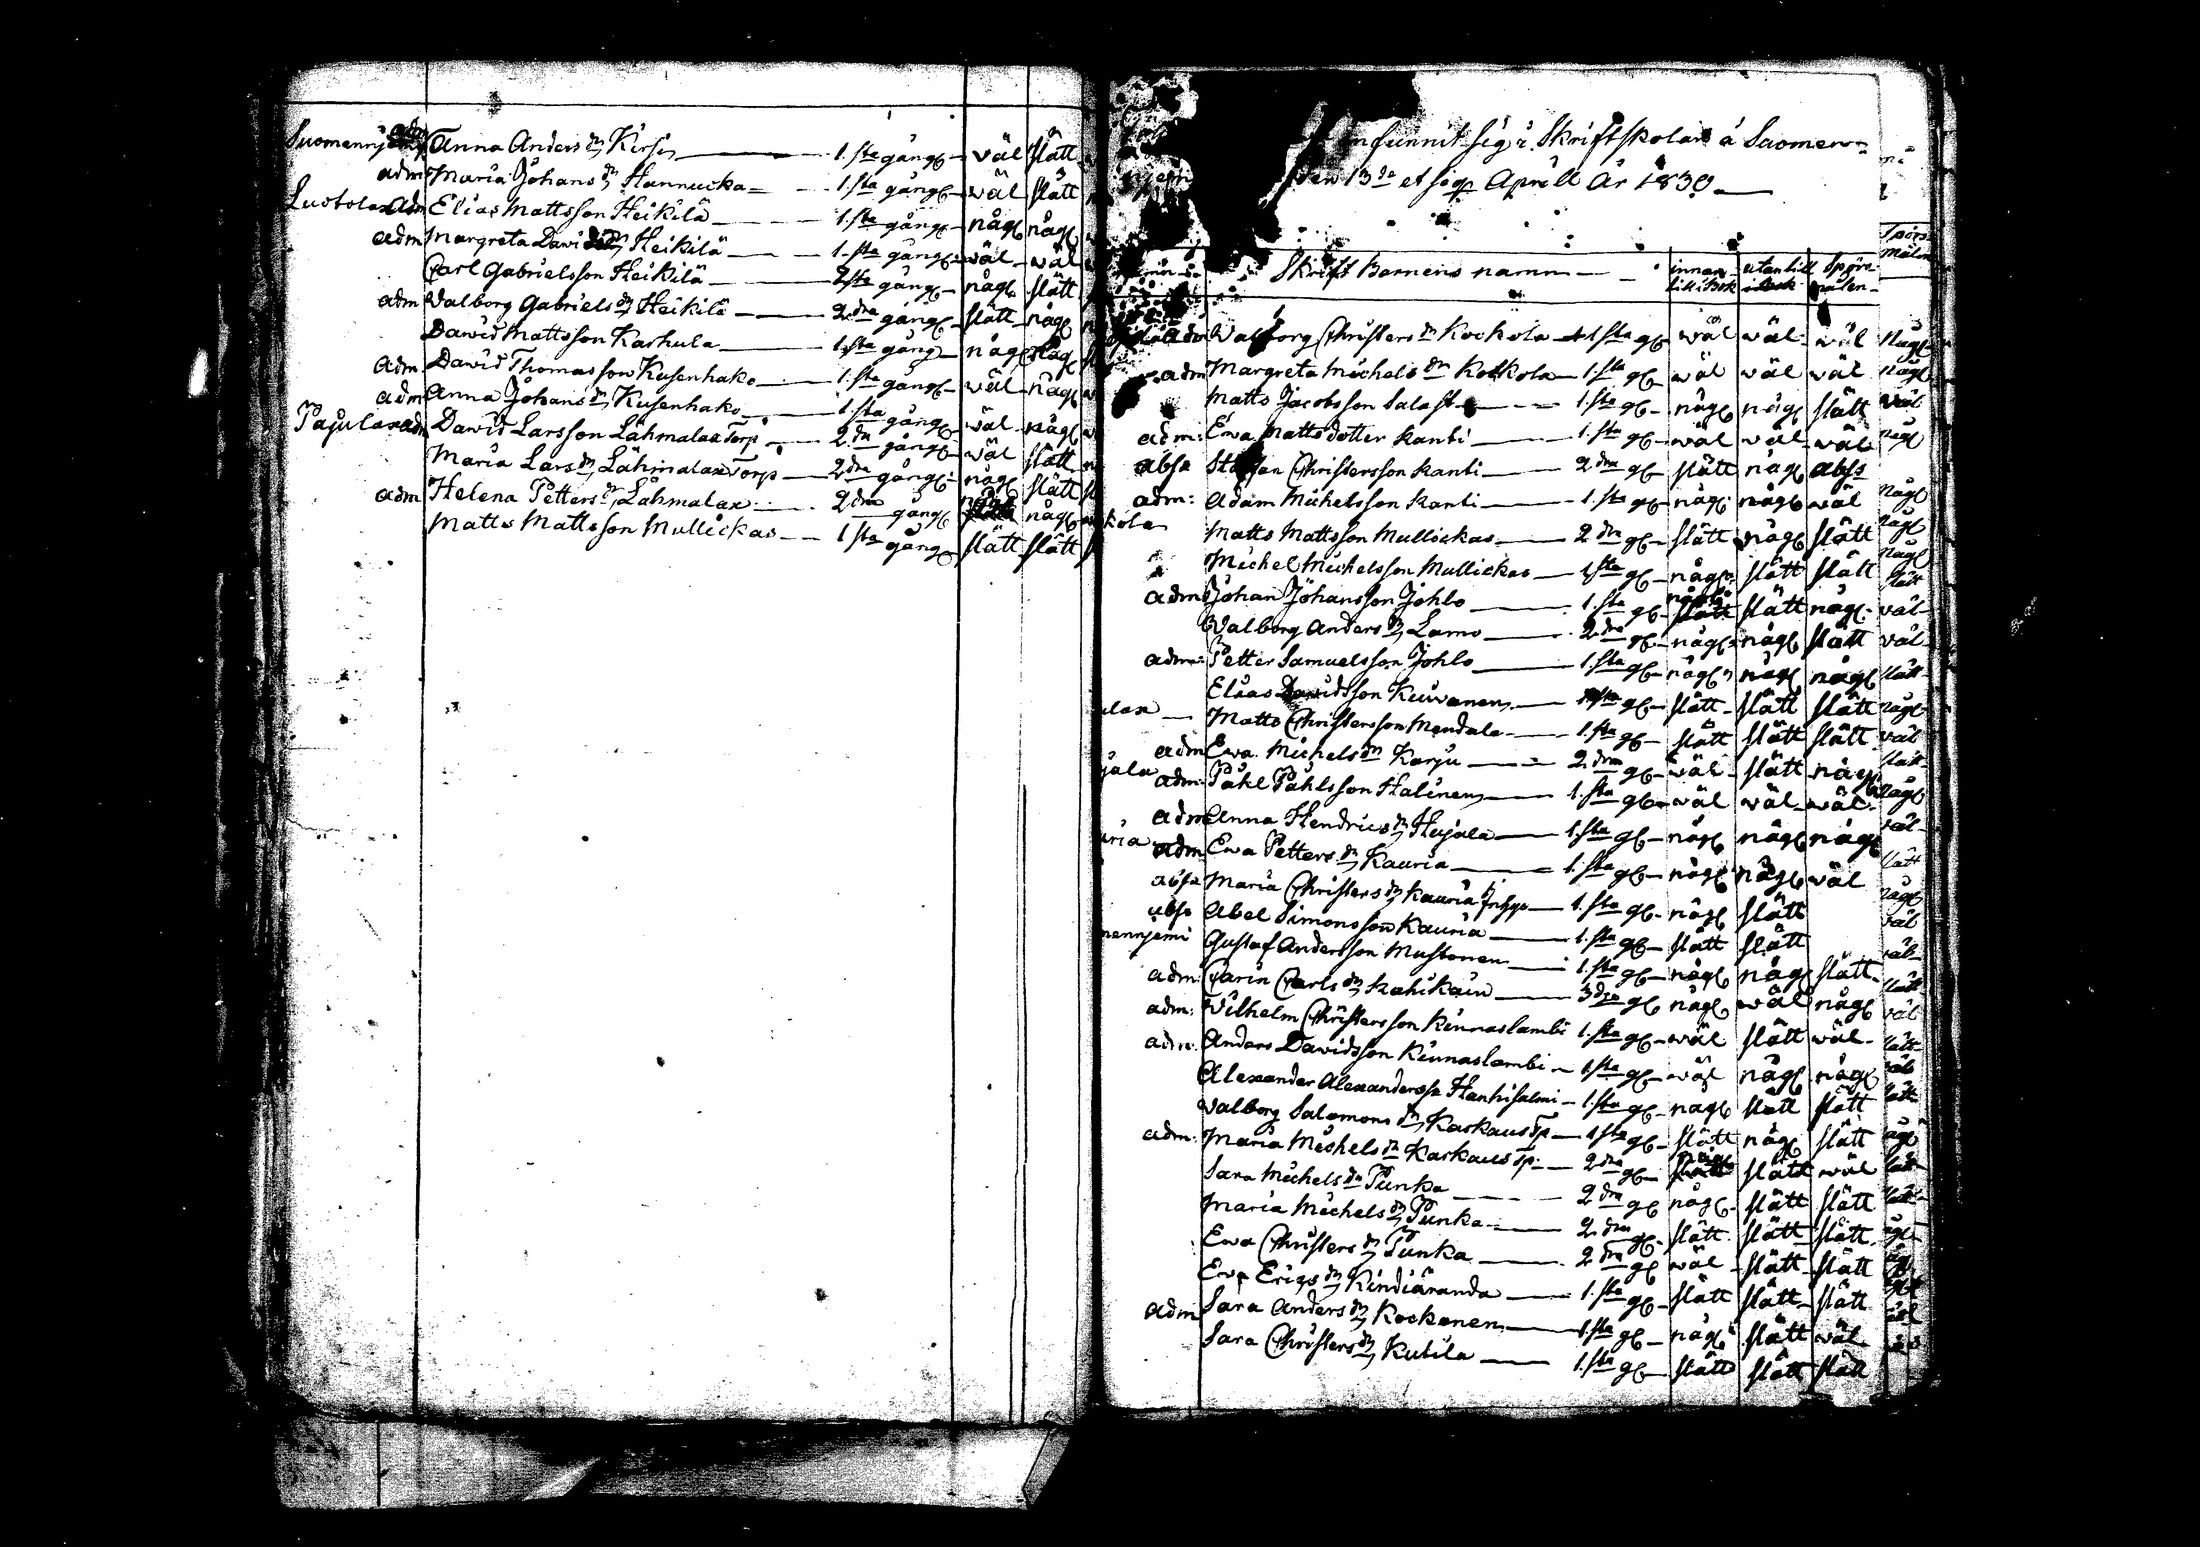 Suomennj adm Anna Anders dr Kirsi 1. sta gång wäl slätt
adm Maria Johans dr Hannucka 1. sta gång wäl slätt
Luotola adm Elias Mattsson Heikilä 1. sta gång någ någ
adm Margreta Dawids dr Heikilä 1. sta gång wäl wäl
Carl Gabrielsson Heikilä sta gång någ slätt
adm Walborg Gabriels dr Heikilä 2. dra gång slätt någ
Dawid Mattsson Karhula 1. sta gång någ någ
adm Dawid Thomasson Kusenhako 1. sta gång wäl någ
adm Anna Johans dr Kusenhako 1. sta gång wäl någ
Pajula adm Dawid Larsson Lähmalax Torp 2 dra gång wäl slätt
Maria Lars dr Lähmalax Torp 2 dra gång någ slätt
adm Helena Petters dr Lähmalax 2 dra gång någ
Matts Mattsson Mullickas 1 sta gång slätt slätt
infunnit sig i Skriftskolan å Suomen=
den 13de et seqv April År 1830
Skrift Barnens namn innan till i Bok utan till Spörs målen
adm Walborg Christers dr Kockola 1 sta gg wäl wäl wäl
adm Margreta Michels dr Kockola 1. sta gg wäl wäl wäl
Matts Jacobsson Salast 1. sta gg någ någ slätt
adm: Ewa Mattsdotter Kanti 1. sta gg wäl wäl wäl
absa Staffan Christersson Kanti 2 dra gg slätt någ abss
adm: Adam Michelsson Kanti 1. sta gg någ någ wäl
kola Matts Mattsson Mullickas 2 dra gg slätt någ slätt
Michel Michelsson Mullickas 1 sta gg någ slätt slätt
adm Johan Johansson Johlo 1. sta gg någ slätt någ
Walborg Anders dr Lamo 2. dra gg någ någ slätt
adm: Petter Samuelsson Johlo 1. sta gg någ någ någ
Elias Dawidsson Keuwanen sta gg slätt slätt slätt
lax Matts Christersson Mendala 1. sta gg slätt slätt slätt
adm Ewa Michels dr Karju 2. dra gg wäl slätt någ
jala adm: Påhl Påhlsson Halinen 1. sta gg wäl wäl wäl
adm Anna Hendrics dr Hujala 1. sta gg någ någ någ
uria adm Ewa Petters dr Kauria 1. sta gg någ någ wäl
absa Maria Christers dr Kauria 1. sta gg någ slätt
absa Abel Simonsson Kauria 1. sta gg slätt slätt
mennjemi Gustaf Andersson Mustonen 1. sta gg någ någ slätt
adm: Carin Carls dr Kahikain 3 dje gg någ wäl någ
adm: Wilhelm Christersson Kinnaslambi 1. sta gg wäl slätt wäl
adm. Anders Dawidsson Kinnaslambi 1 sta gg wäl någ någ
Alexander Alexandersson Hanhisalmi 1. sta gg någ slätt slätt
Walborg Salomons dr Karkaus Tp 1 sta gg slätt någ slätt
adm: Maria Michels dr Karkaus Tp 2 dra gg slätt wäl
Sara Michels dr Punka 2 dra gg någ slätt slätt
Maria Michels dr Punka 2. dra gg slätt slätt slätt
Ewa Christers dr Punka 2 dra gg wäl slätt slätt
Ewa Erics dr Kindiäranda 1. sta gg slätt slätt slätt
adm Sara Anders dr Kockonen 1 sta gg någ slätt wäl
Sara Christers dr Kutila 1. sta gg slätt slätt slätt